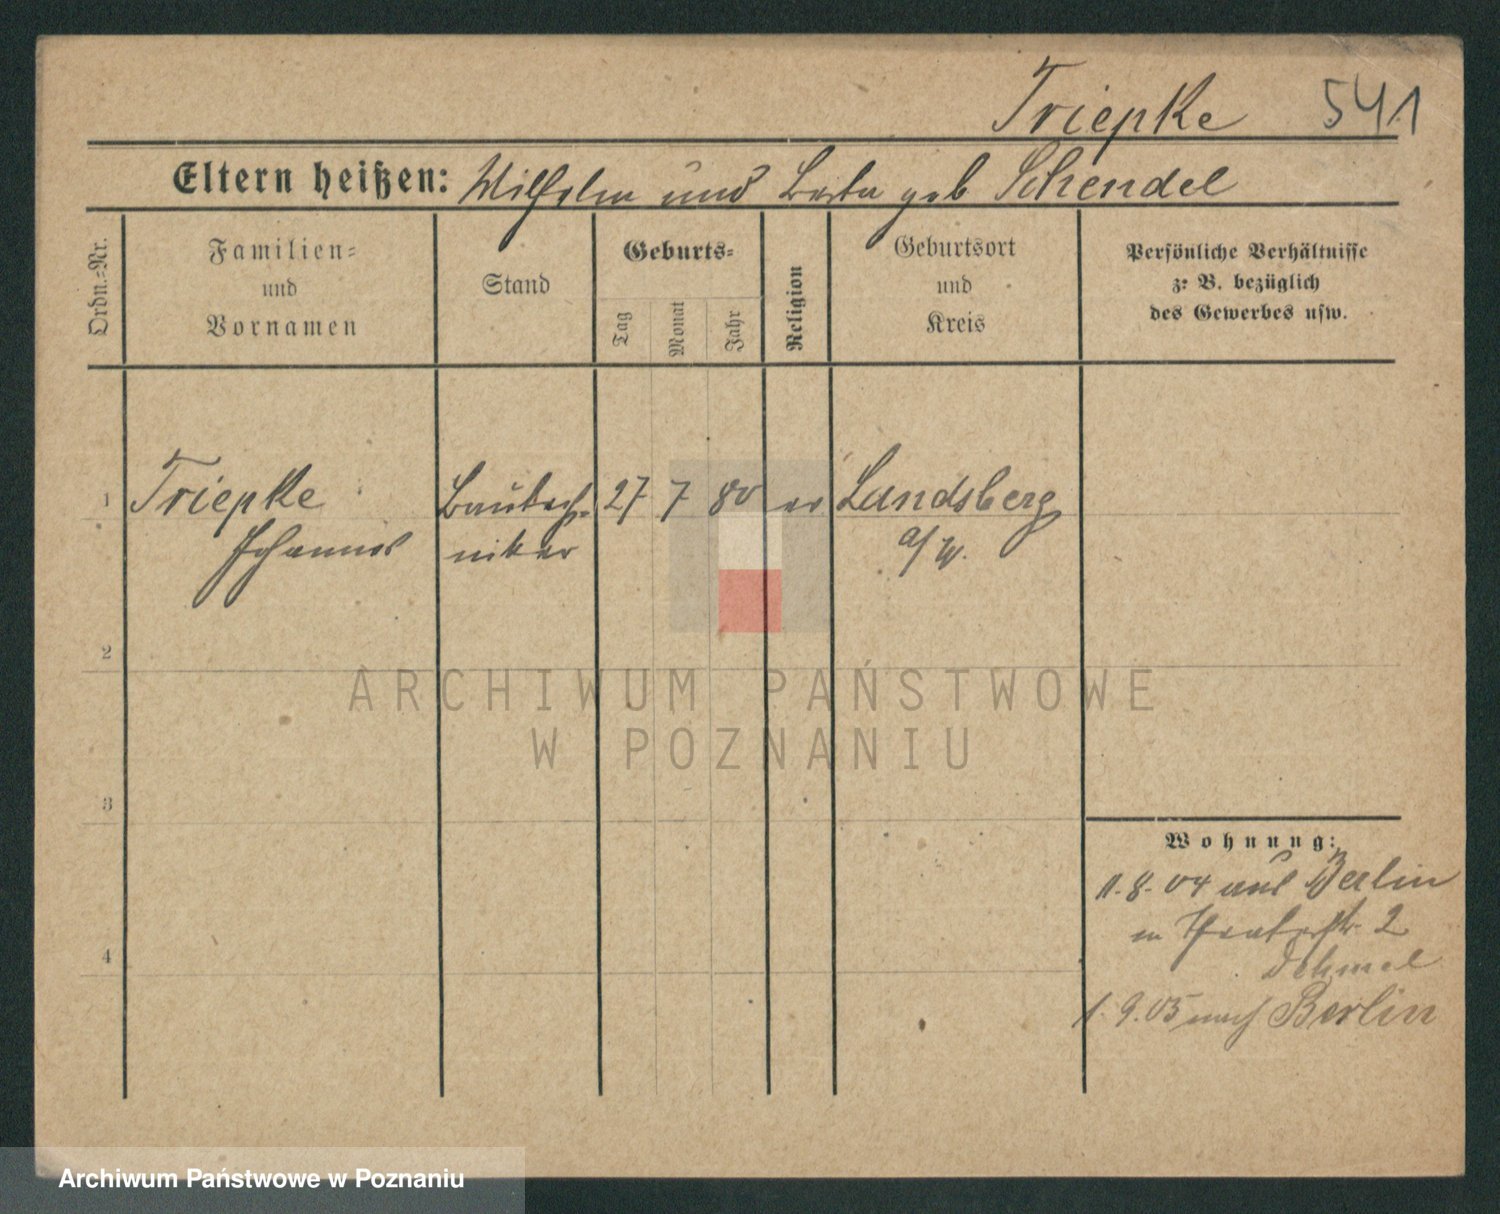 Triepke 541
Eltern heißen: Wilhelm und Berta geb Schendel
Ordn.=Nr.
Familien=
und
Vornamen
Stand
Geburts=
Tag
Monat
Jahr
Religion
Geburtsort
und
Kreis
Persönliche Verhältnisse
z. B. bezüglich
des Gewerbes usw.
1 Triepke Bautech= 27 7 80 ev Landsberg
Johannes niker a/W.
2
ARCHIWUM PAŃSTWOWE
W POZNANIU
3
Wohnung:
11. 8. 04 aus Berlin
4
in Theaterstr. 2
Dehmel
1. 9. 05 nach Berlin
Archiwum Państwowe w Poznaniu